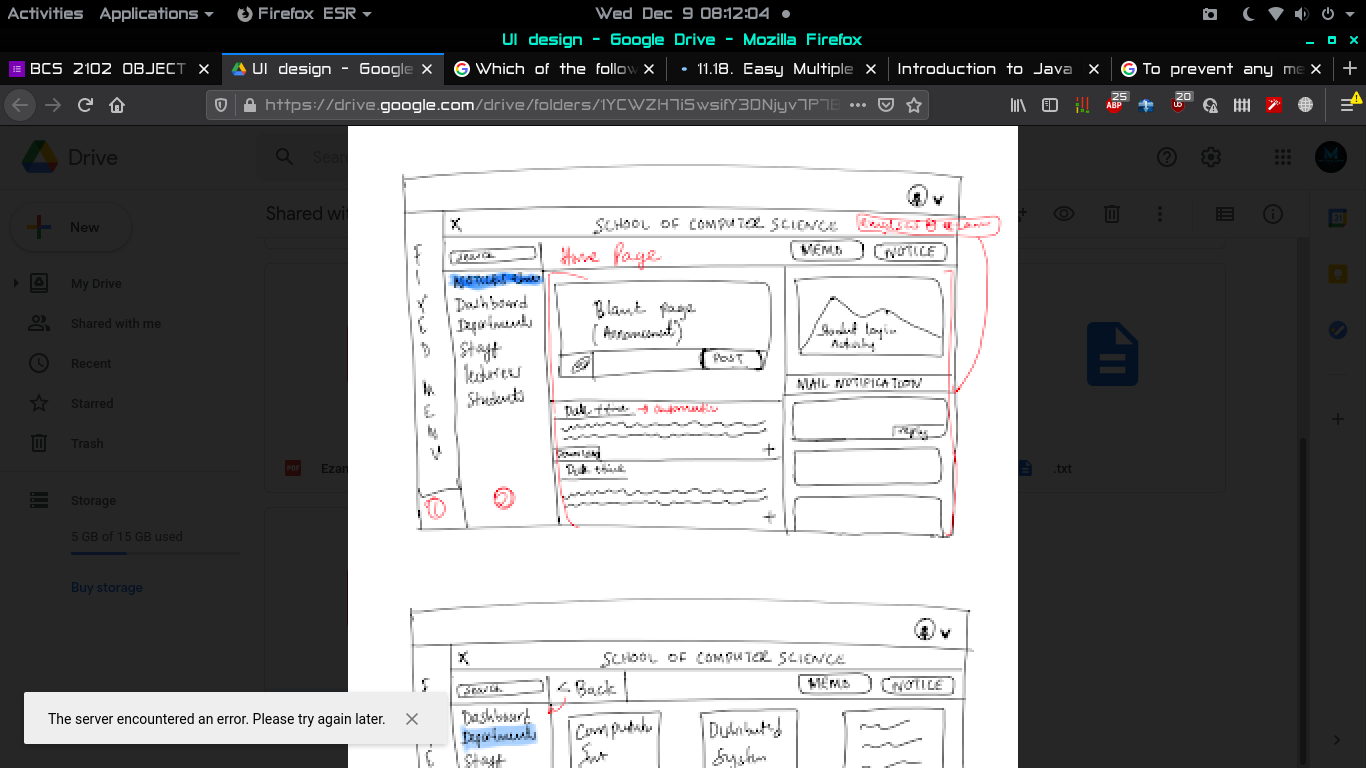 Activities Applications Firefox ESR Wed Dec 9 08:12:04
UI design - Google Drive - Mozilla Firefox
BCS 2102 OBJECT UI design - Google Which of the follow 11.18. Easy Multiple Introduction to Java To prevent any me
https://drive.google.com/drive/folders/1YCWZH7iSwsifY3DNjyv7P7B 25 ABP 20
Drive
Sear
New
Shared wit
My Drive
Shared with me
Recent
Starred
Trash
Storage
5 GB of 15 GB used
Buy storage
PDF Exan
.txt
SCHOOL OF COMPUTER SCIENCE
X
FIXED MENU
Search
Home Page
MEMO NOTICE
Dashboard
Departments
Staff
lecturers
Students
Blank page
POST
Student login
Activity
MAIL NOTIFICATION
Reply
Date + time → automatic
Download +
Date + time
+
1 2
X SCHOOL OF COMPUTER SCIENCE
Search < Back MEMO NOTICE
Dashboard
Departments
Staff
Distributed
System
The server encountered an error. Please try again later.